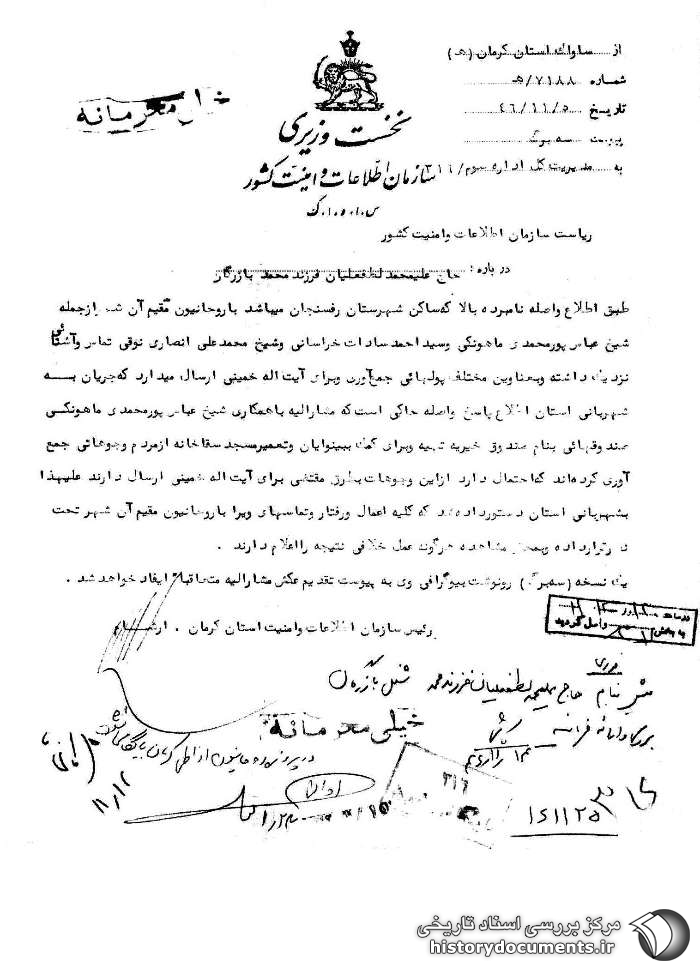 از ساواك استان كرمان (هـ)
شماره ۷۱۸۸/هـ
تاريخ ۴۶/۱۱/۵
پيوست سه برگ
به مديريت كل اداره سوم/۳۱۶
خيلى محرمانه
نخست وزيرى
سازمان اطلاعات و امنيت كشور
س.ا.و.ا.ك
رياست سازمان اطلاعات وامنيت كشور
درباره : حاج عليمحمد لطفعليان فرزند محمد بازرگان
طبق اطلاع واصله نامبرده بالا كه ساكن شهرستان رفسنجان ميباشد با روحانيون مقيم آن شهر ازجمله
شيخ عباس پورمحمدى ماهونكى وسيد احمد سادات خراسانى وشيخ محمدعلى انصارى نوقى تماس وآشنائى
نزديك داشته وبعناوين مختلف پولهائى جمع آورى وبراى آيت اله خمينى ارسال ميدارد كه جريان بسه
شهربانى استان اطلاع پاسخ واصله حاكى است كه مشاراليه باهمكارى شيخ عباس پورمحمدى ماهونكسى
صندوقهائى بنام صندوق خيريه تهيه وبراى كمك ببينوايان وتعميرمسجد سقاخانه ازمردم وجوهاتى جمع
آورى كرده اند كه احتمال دارد ازاين وجوهات بطرق مقتضى براى آيت اله خمينى ارسال دارند عليهذا
بشهربانى استان دستورداده شد كه كليه اعمال ورفتار وتماسهاى ويرا باروحانيون مقيم آن شهر تحت
نظر قرارداده وبمحض مشاهده هرگونه عمل خلافى نتيجه را اعلام دارند .
يك نسخه (سه برگ) رونوشت بيوگرافى وى به پيوست تقديم عكس مشاراليه متعاقبا ايفاد خواهد شد .
رئيس سازمان اطلاعات وامنيت استان كرمان .
واصل گرديد
بنام حاج عليمحمد لطفعليان فرزند محمد شغل بازرگان
خيلى محرمانه
۳۱۶
۱۱/۱۲
مركز بررسى اسناد تاريخى
historydocuments.ir